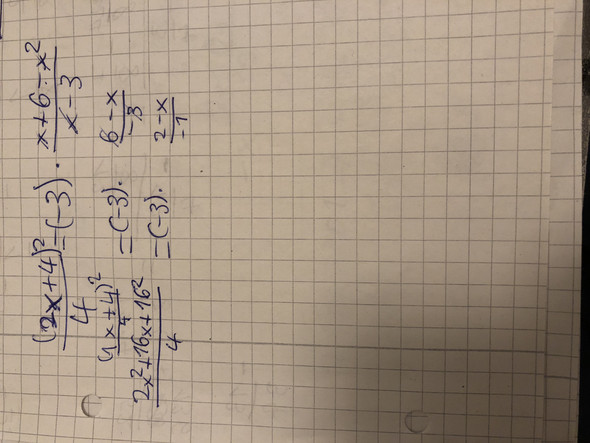 (2x+4)²/4 = (-3) · (x+6-x²)/(x-3)
(4x+4)²/4 = (-3) · (6-x)/-3
(2x²+16x+16²)/4 = (-3) · (2-x)/-1